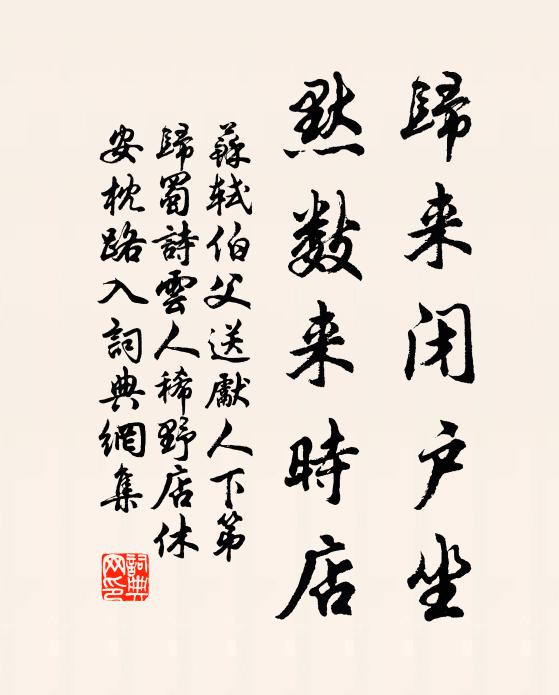 歸来闭户坐
默数来時店
蘇軾伯父送獻人下第
歸蜀詩雲人稀野店休
安枕路入詞典網集
詞典
网印